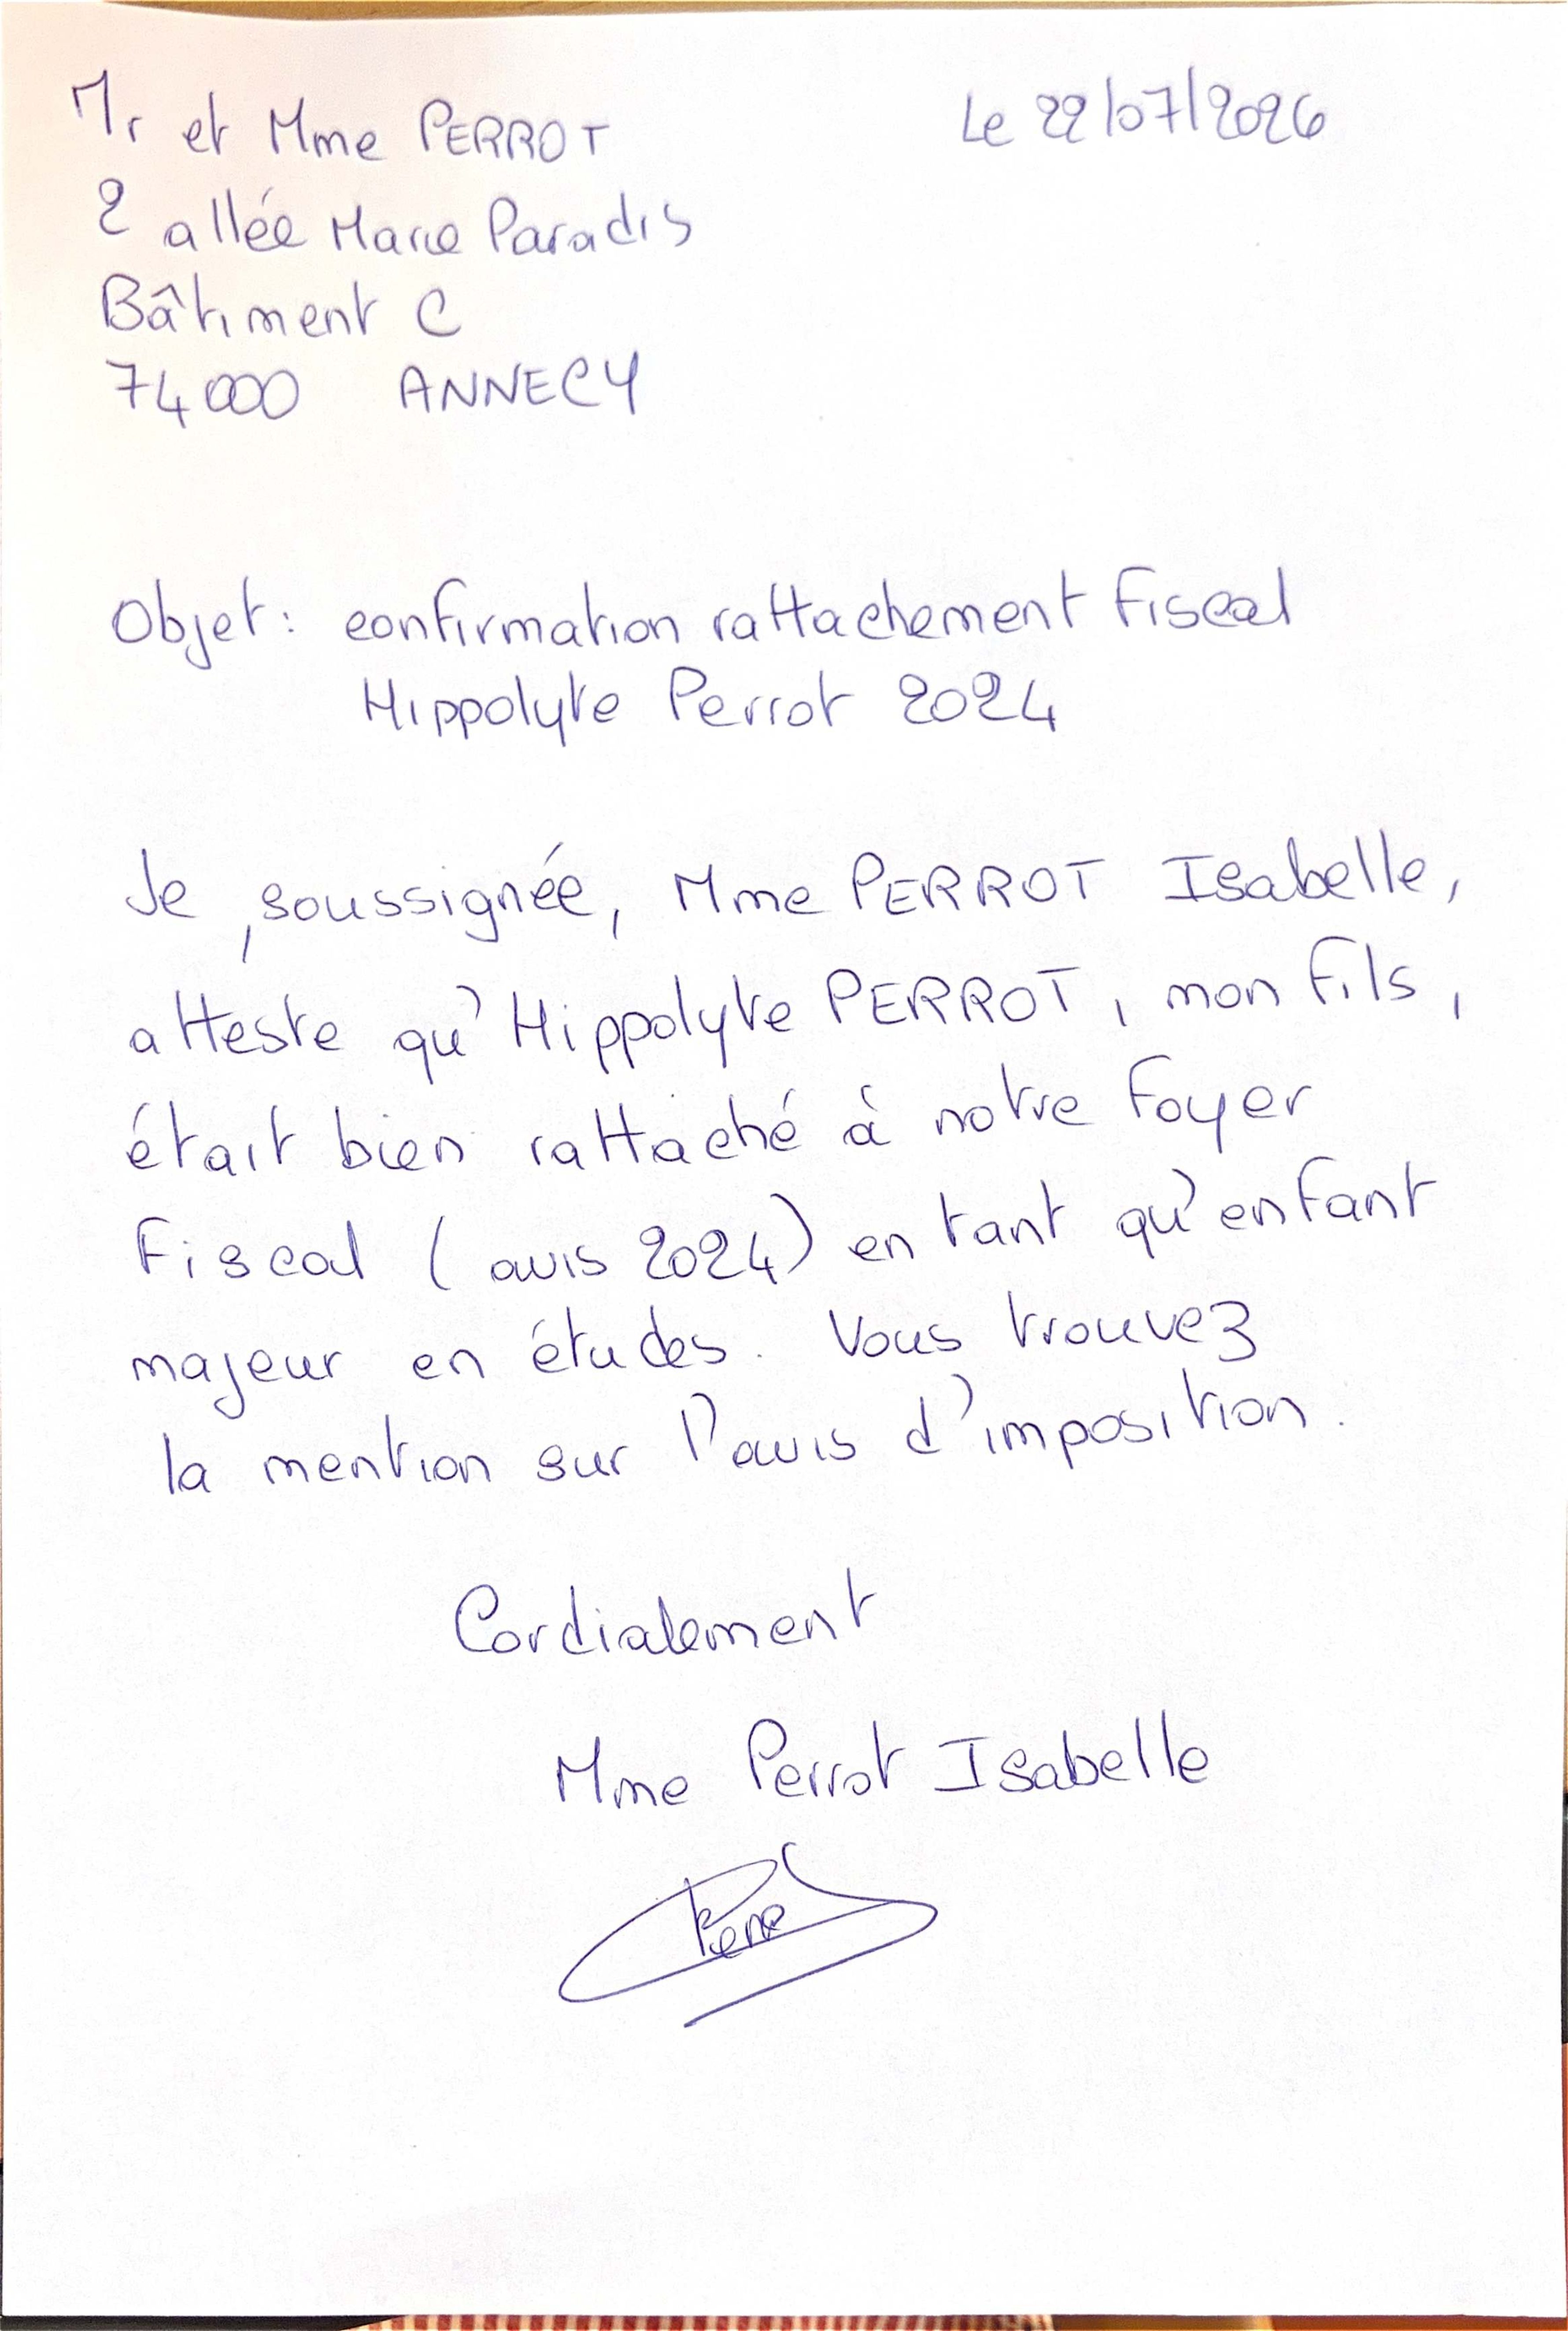 Mr et Mme PERROT
Le 22/07/2026
2 allée Marie Paradis
Bâtiment C
74000 ANNECY
Objet : confirmation rattachement fiscal
Hippolyte Perrot 2024
Je, soussignée, Mme PERROT Isabelle,
atteste qu'Hippolyte PERROT, mon fils,
était bien rattaché à notre foyer
fiscal (avis 2024) en tant qu'enfant
majeur en études. Vous trouvez
la mention sur l'avis d'imposition.
Cordialement
Mme Perrot Isabelle